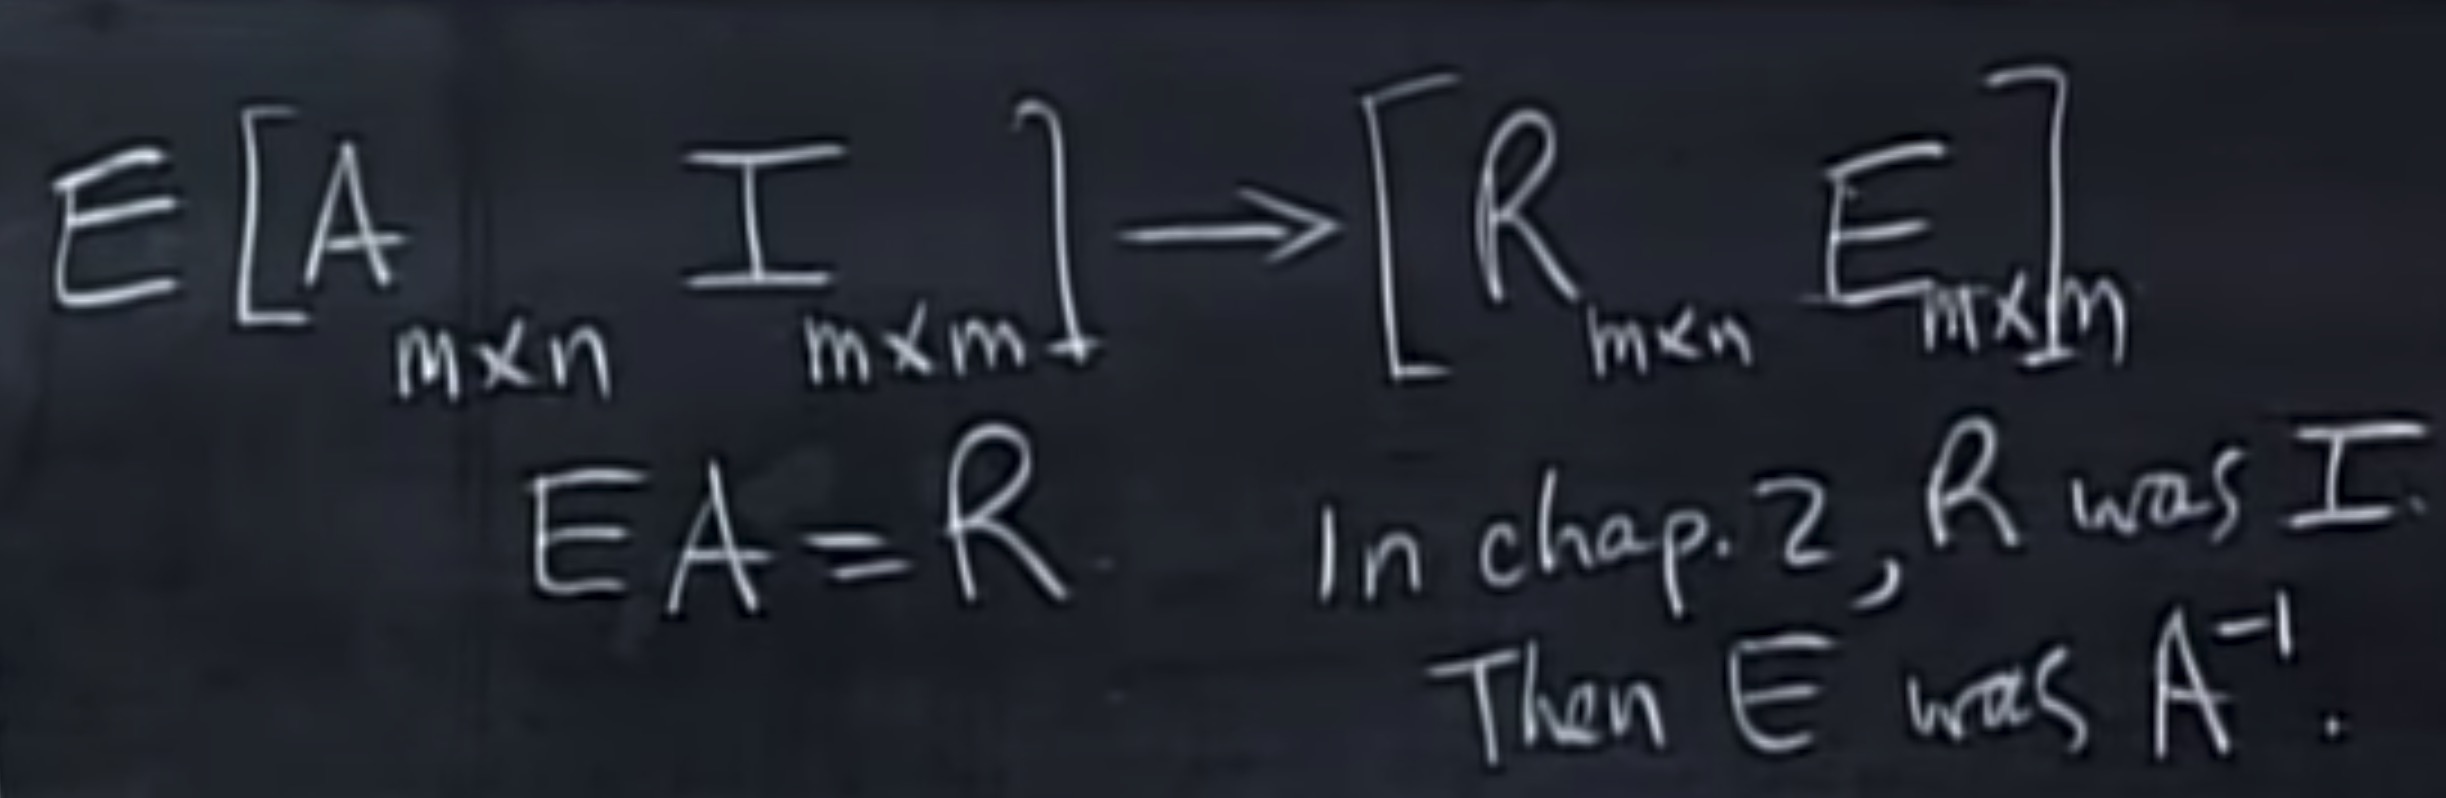 E[A m×n I m×m] → [R m×n E m×m]
EA = R
In chap. 2, R was I.
Then E was A⁻¹.